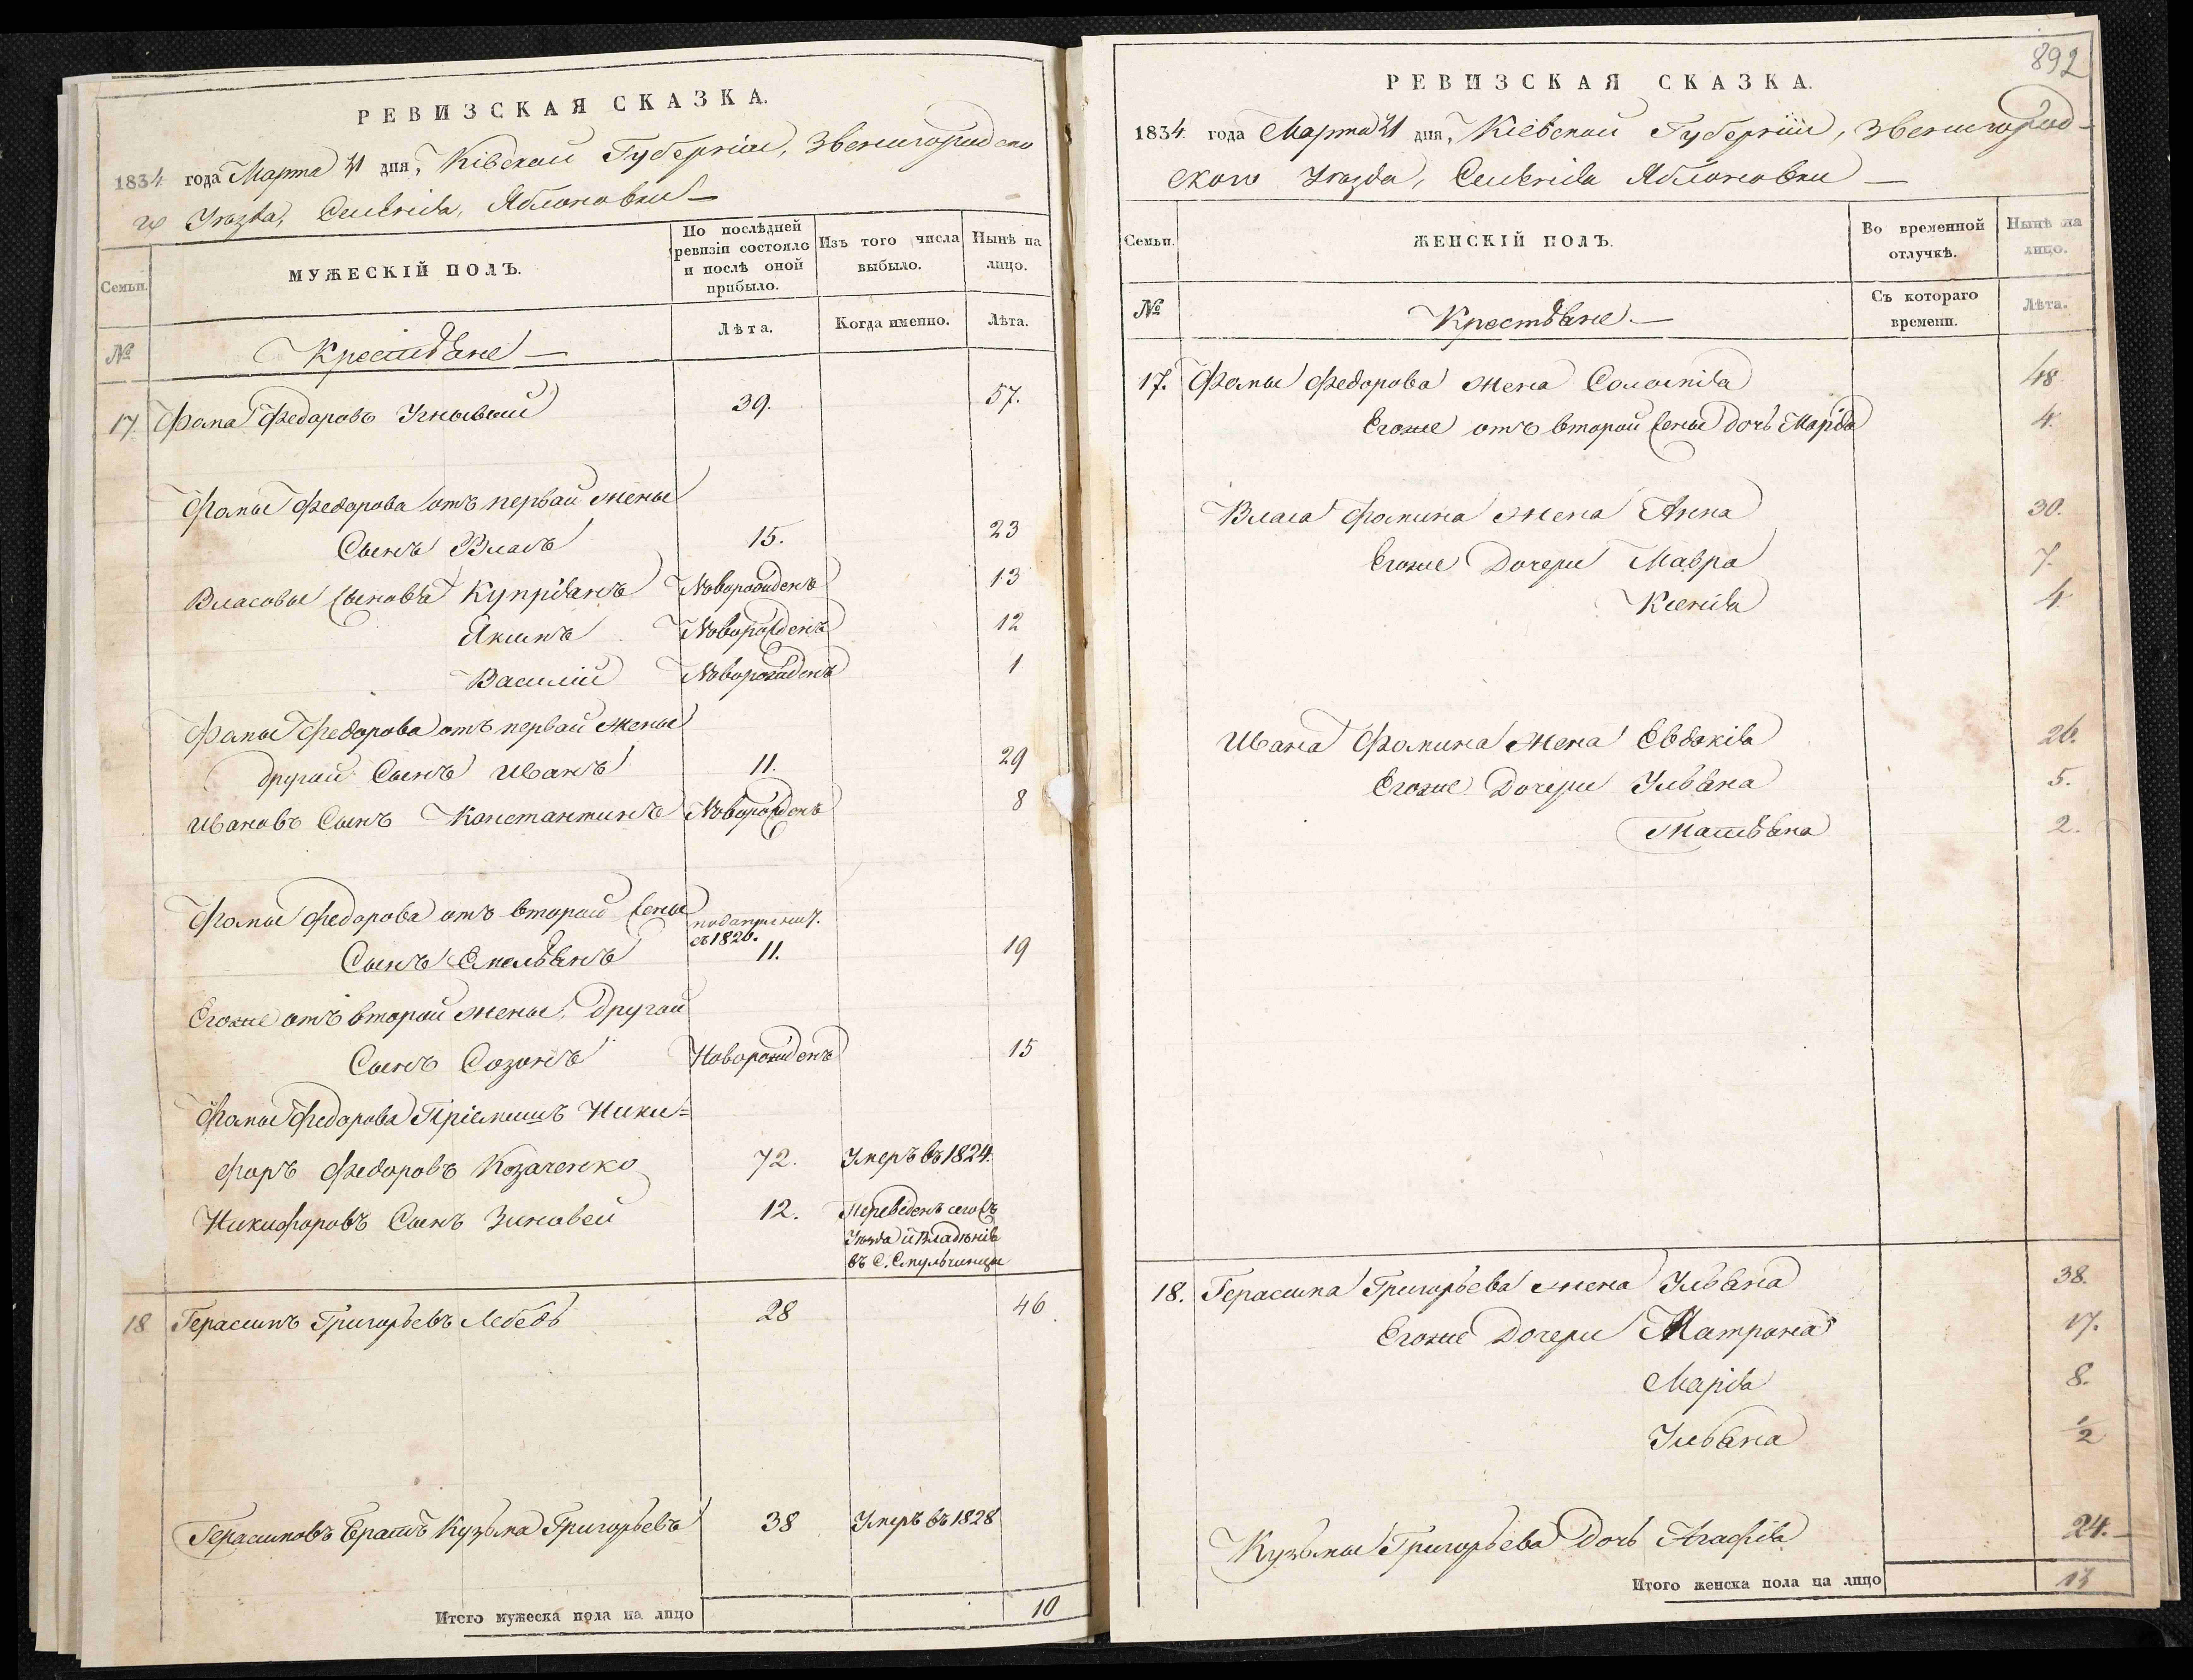 РЕВИЗСКАЯ СКАЗКА.
1834 года Марта 31 дня, Кіевской Губерніи, Звенигородска
го Уѣзда, Селенія, Яблоновки
Семьи.
МУЖЕСКІЙ ПОЛЪ.
По послѣдней ревизіи состояло и послѣ оной прибыло.
Изъ того числа выбыло.
Нынѣ на лицо.
№
Крестьяне
Лѣта.
Когда именно.
Лѣта.
17. Фома Федоровъ 39. 57.
Фомы Федорова отъ первой жены
Сынъ Власъ 15. 23
Власовы сыновья Купріянъ Новорожденъ 13
Якимъ Новорожденъ 12
Василій Новорожденъ 1
Фомы Федорова отъ первой жены
другой Сынъ Иванъ 11. 29
Ивановъ Сынъ Константинъ Новорожденъ 8
Фомы Федорова отъ второй жены
съ 1820.
Сынъ Емельянъ 11. 19
Егоже отъ второй жены, другой
Сынъ Созонъ Новорожденъ 15
Фомы Федорова Пріемышъ Ники=
форъ Федоровъ Козаченко 72. Умеръ въ 1824.
Никифоровъ Сынъ Зиновей 12. Переведенъ сегожъ
Уѣзда и Владѣнія
въ С.
18 Герасимъ Григорьевъ Лебедь 28 46
Герасимовъ братъ Кузьма Григорьевъ 38 Умеръ въ 1828
Итого мужеска пола на лицо 10
892
РЕВИЗСКАЯ СКАЗКА.
1834 года Марта 31 дня, Кіевской Губерніи, Звенигород-
скаго Уѣзда, Селенія Яблоновки
Семьи.
ЖЕНСКІЙ ПОЛЪ.
Во временной отлучкѣ.
Нынѣ на лицо.
№
Крестьяне.
Съ котораго времени.
Лѣта.
17. Фомы Федорова жена Соломія 48
Егоже отъ второй жены дочь Марія 4.
Власа Фомина жена Анна 30.
Егоже Дочери Мавра 7.
Ксенія 4.
Ивана Фомина жена Евдокія 26.
Егоже Дочери Ульяна 5.
Татьяна 2.
18. Герасима Григорьева жена Ульяна 38.
Егоже Дочери Матрона 17.
Марія 8.
Ульяна 1/2
Кузьмы Григорьева Дочь Агафія 24.
Итого женска пола на лицо 13